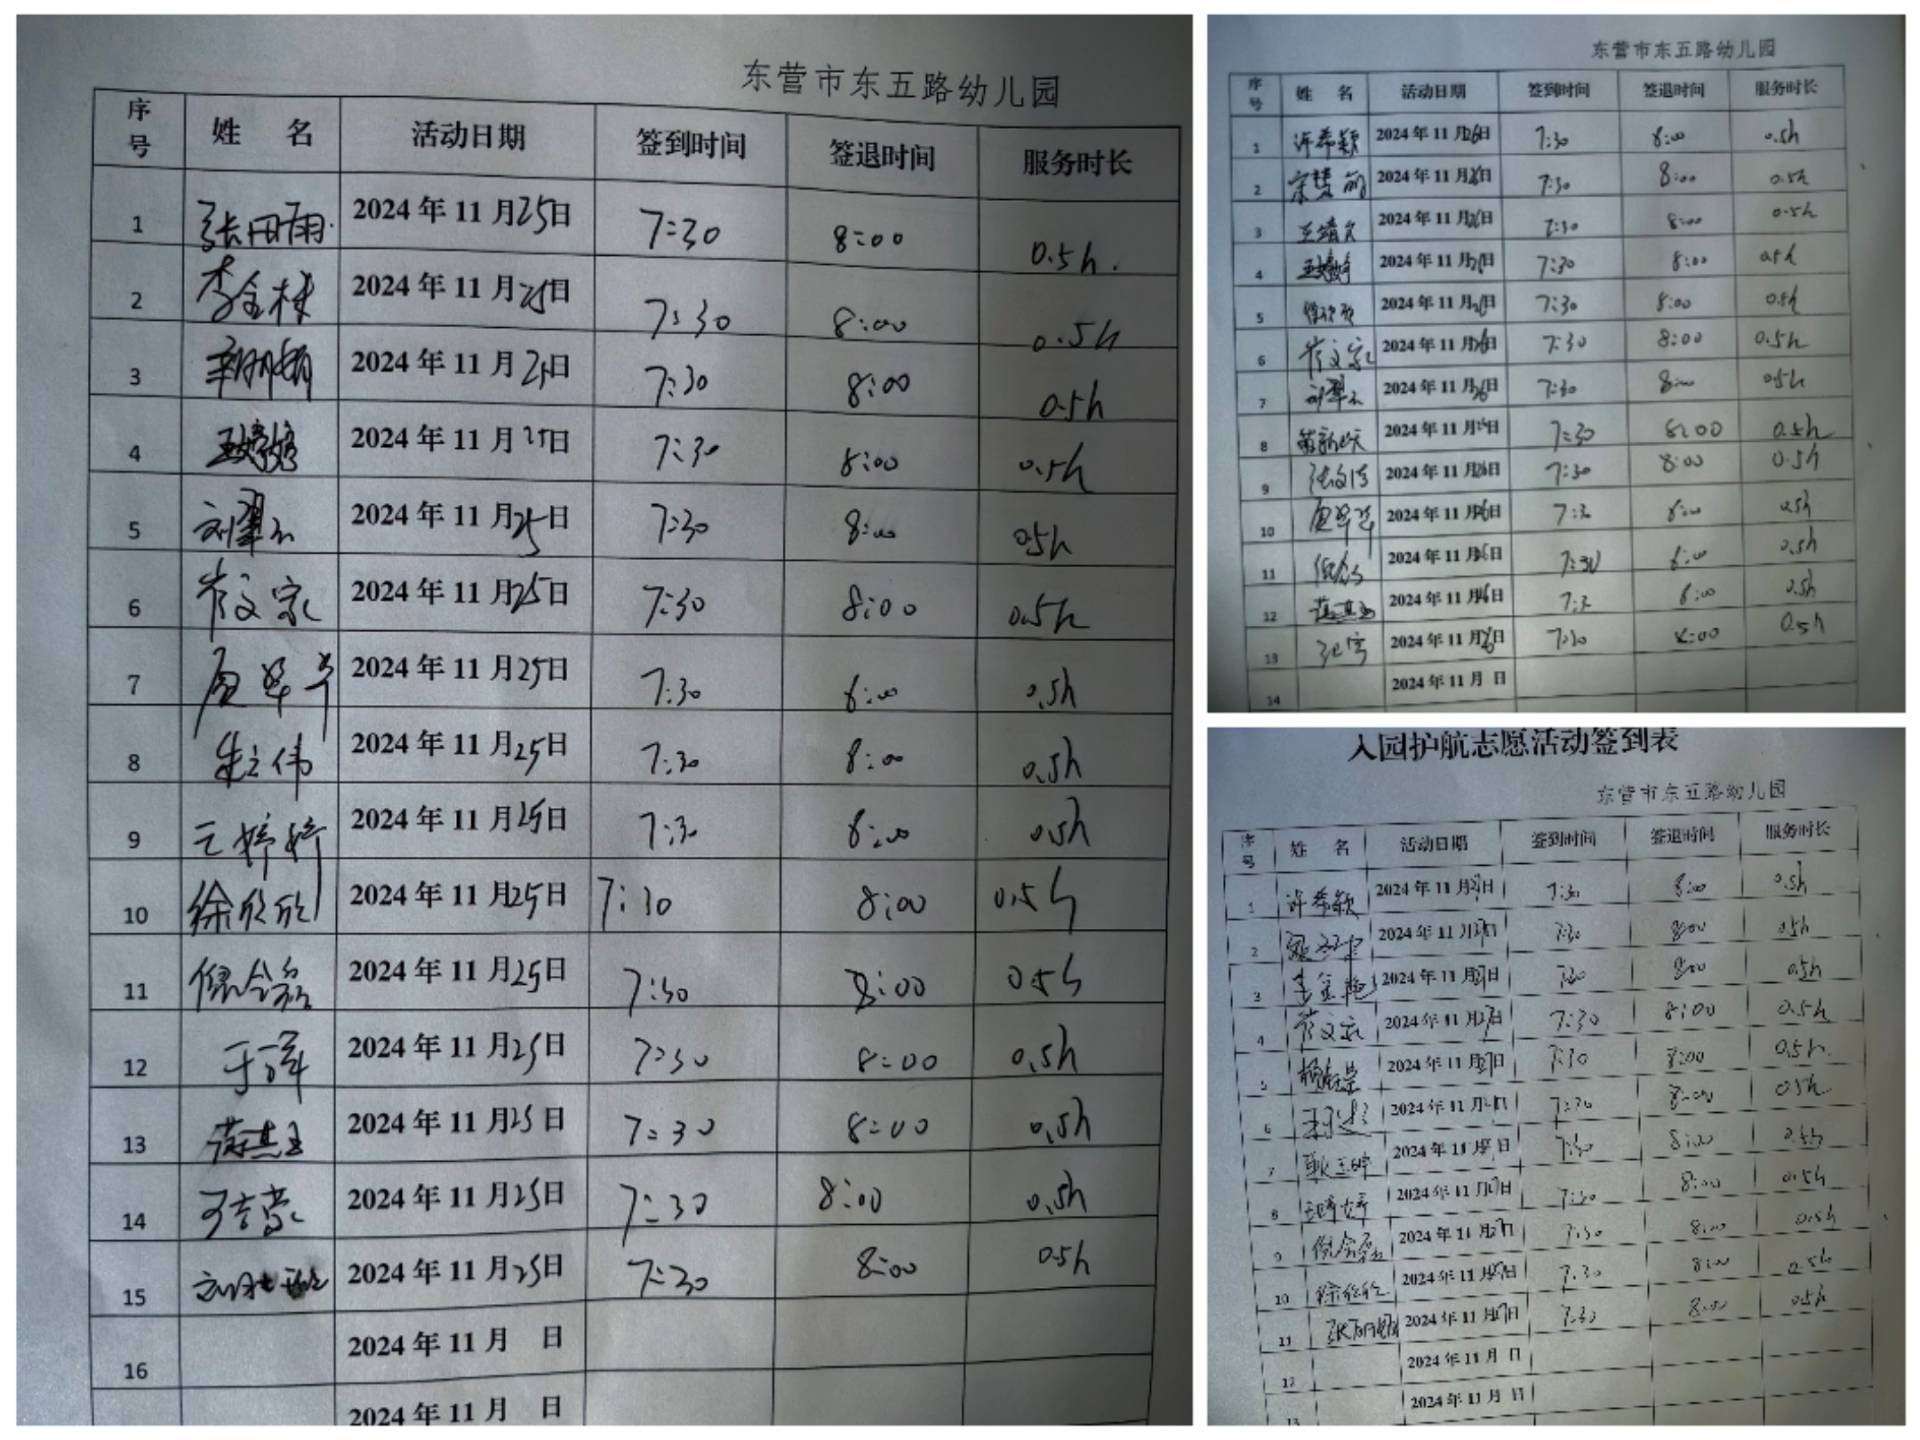 东营市东五路幼儿园
序号 姓 名 活动日期 签到时间 签退时间 服务时长
1 2024年11月25日 7:30 8:00 0.5h.
2 李金林 2024年11月25日 7:30 8:00 0.5h
3 2024年11月25日 7:30 8:00 0.5h
4 2024年11月25日 7:30 8:00 0.5h
5 2024年11月25日 7:30 8:00 0.5h
6 崔文家 2024年11月25日 7:30 8:00 0.5h
7 2024年11月25日 7:30 8:00 0.5h
8 朱立伟 2024年11月25日 7:30 8:00 0.5h
9 王婷婷 2024年11月25日 7:30 8:00 0.5h
10 徐欣欣 2024年11月25日 7:30 8:00 0.5h
11 2024年11月25日 7:30 8:00 0.5h
12 2024年11月25日 7:30 8:00 0.5h
13 2024年11月25日 7:30 8:00 0.5h
14 2024年11月25日 7:30 8:00 0.5h
15 2024年11月25日 7:30 8:00 0.5h
16 2024年11月 日
2024年11月 日
东营市东五路幼儿园
序号 姓 名 活动日期 签到时间 签退时间 服务时长
1 许希颖 2024年11月26日 7:30 8:00 0.5h
2 2024年11月26日 7:30 8:00 0.5h
3 2024年11月26日 7:30 8:00 0.5h
4 2024年11月26日 7:30 8:00 0.5h
5 2024年11月26日 7:30 8:00 0.5h
6 崔文家 2024年11月26日 7:30 8:00 0.5h
7 2024年11月26日 7:30 8:00 0.5h
8 2024年11月26日 7:30 8:00 0.5h
9 2024年11月26日 7:30 8:00 0.5h
10 2024年11月26日 7:30 8:00 0.5h
11 2024年11月26日 7:30 8:00 0.5h
12 2024年11月26日 7:30 8:00 0.5h
13 2024年11月26日 7:30 8:00 0.5h
14 2024年11月 日
入园护航志愿活动签到表
东营市东五路幼儿园
序号 姓 名 活动日期 签到时间 签退时间 服务时长
1 许希颖 2024年11月27日 7:30 8:00 0.5h
2 2024年11月27日 7:30 8:00 0.5h
3 李金艳 2024年11月27日 7:30 8:00 0.5h
4 崔文家 2024年11月27日 7:30 8:00 0.5h
5 2024年11月27日 7:30 8:00 0.5h
6 2024年11月27日 7:30 8:00 0.5h
7 2024年11月27日 7:30 8:00 0.5h
8 2024年11月27日 7:30 8:00 0.5h
9 2024年11月27日 7:30 8:00 0.5h
10 徐欣欣 2024年11月27日 7:30 8:00 0.5h
11 2024年11月27日 7:30 8:00 0.5h
12 2024年11月 日
13 2024年11月 日